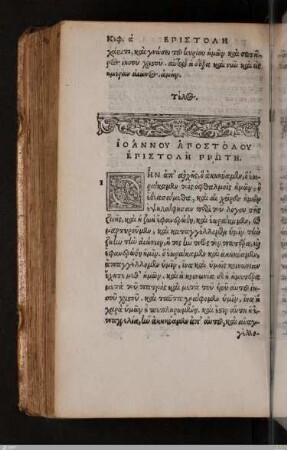 Κεφ. α ΕΠΙΣΤΟΛΗ
χάριτι, καὶ γνώσει τοῦ κυρίου ἡμῶν καὶ σωτῆ-
ρος ἰησοῦ χριστοῦ. αὐτῷ ἡ δόξα καὶ νῦν καὶ εἰς
ἡμέραν αἰῶνος. ἀμήν.
Τέλος.
ΙΩΑΝΝΟΥ ΑΠΟΣΤΟΛΟΥ
ΕΠΙΣΤΟΛΗ ΠΡΩΤΗ.
1 Ο ΗΝ ἀπ' ἀρχῆς, ὃ ἀκηκόαμεν, ὃ ἑω-
ράκαμεν τοῖς ὀφθαλμοῖς ἡμῶν, ὃ
ἐθεασάμεθα, καὶ αἱ χεῖρες ἡμῶν
ἐψηλάφησαν περὶ τοῦ λόγου τῆς
ζωῆς, καὶ ἡ ζωὴ ἐφανερώθη, καὶ ἑωράκαμεν, καὶ
μαρτυροῦμεν, καὶ καταγγέλλομεν ὑμῖν τὴν
ζωὴν τὴν αἰώνιον, ἥτις ἦν πρὸς τὸν πατέρα, καὶ
ἐφανερώθη ἡμῖν, ὃ ἑωράκαμεν καὶ ἀκηκόαμεν,
ἀπαγγέλλομεν ὑμῖν, ἵνα καὶ ὑμεῖς κοινωνίαν
ἔχητε μεθ' ἡμῶν, καὶ ἡ κοινωνία δὲ ἡ ἡμετέρα
μετὰ τοῦ πατρὸς καὶ μετὰ τοῦ υἱοῦ αὐτοῦ ἰη-
σοῦ χριστοῦ. καὶ ταῦτα γράφομεν ὑμῖν, ἵνα ἡ
χαρὰ ὑμῶν ᾖ πεπληρωμένη. καὶ ἔστιν αὕτη ἡ ἐ-
παγγελία, ἣν ἀκηκόαμεν ἀπ' αὐτοῦ, καὶ ἀναγ-
γέλλο-